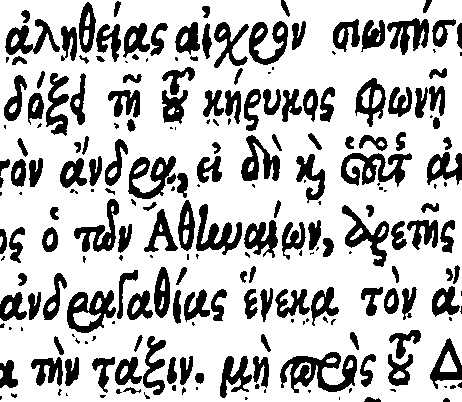 ἀληθείας αἰχρὸν σιωπήσ
δόξῃ τῇ τοῦ κήρυκος φωνῇ
τὸν ἄνδρα, εἰ δὴ καὶ
ος ὁ τῶν Ἀθηναίων, ἀρετῆς
ἀνδραγαθίας ἕνεκα τὸν ἄ
α τὴν τάξιν. μὴ πρὸς τοῦ Δ